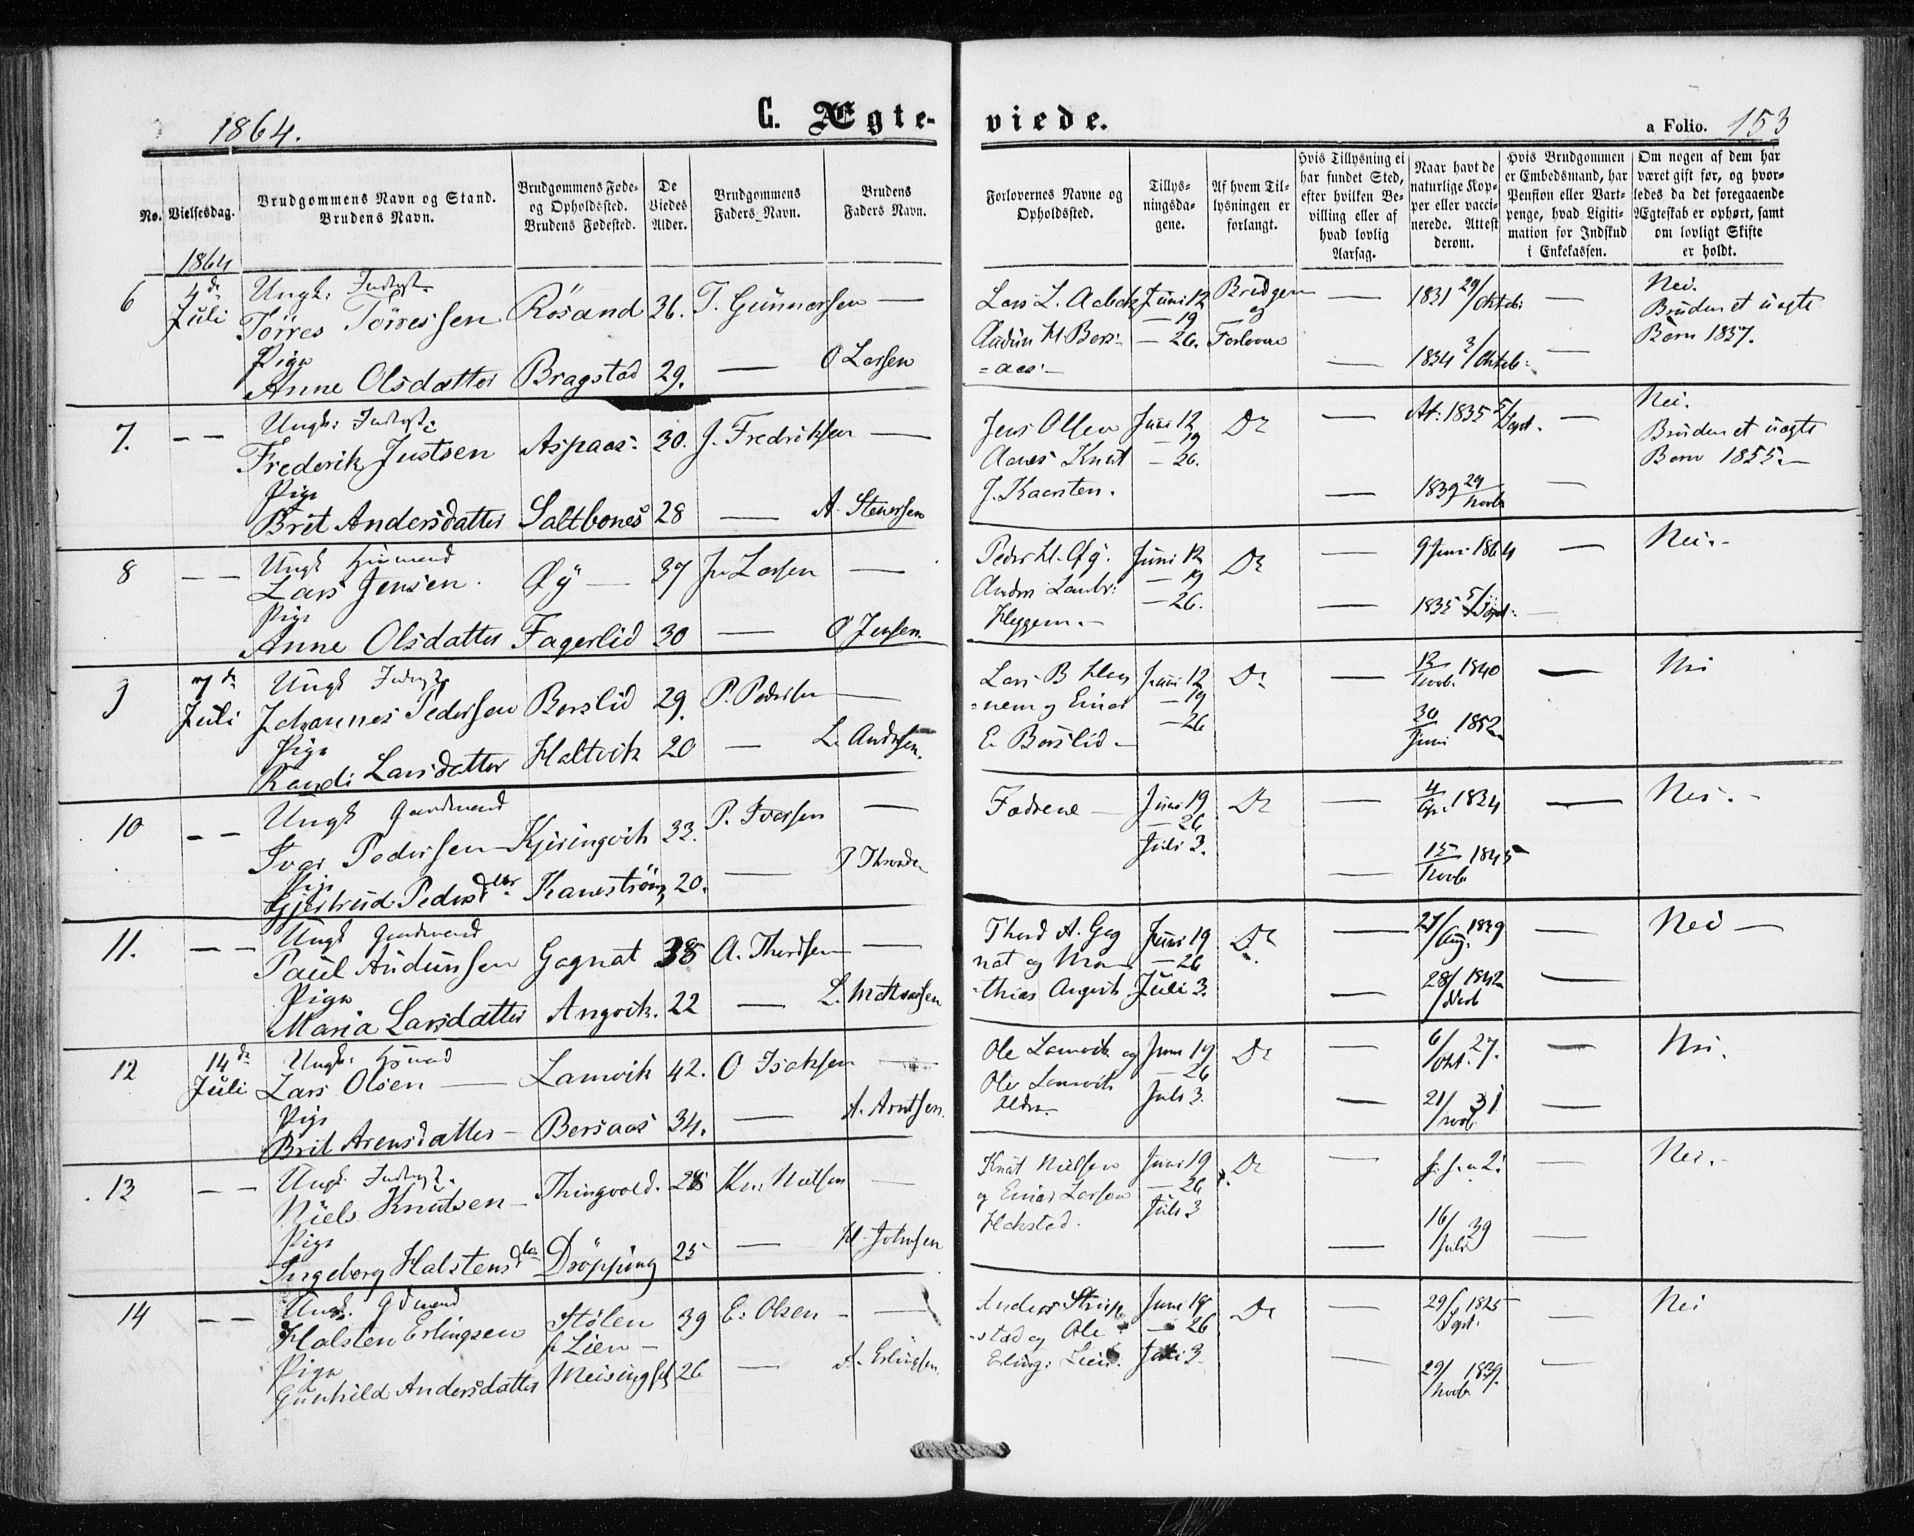 1864.
C. Ægte-
viede.
a Folio. 153
No.
Vielsesdag.
Brudgommens Navn og Stand.
Brudens Navn.
Brudgommens Føde-
og Opholdssted.
Brudens Fødested.
De
Viedes
Alder.
Brudgommens
Faders Navn.
Brudens
Faders Navn.
Forlovernes Navne og
Opholdssted.
Tillys-
ningsda-
gene.
Af hvem Til-
lysningen er
forlangt.
Hvis Tillysning ei
har fundet Sted,
efter hvilken Be-
villing eller af
hvad lovlig
Aarsag.
Naar havt de
naturlige Kop-
per eller vacci-
nerede. Attest
derom.
Hvis Brudgommen
er Embedsmand, har
Pension eller Vart-
penge, hvad Ligiti-
mation for Indskud
i Enkekassen.
Om nogen af dem har
været gift før, og hvor-
ledes da det foregaaende
Ægteskab er ophørt, samt
om lovligt Skifte
er holdt.
1864
6 4de Juli Ungk: Inderst: Törres Törressen Rösand 36. T. Gunnarsen —
Pige Anne Olsdatter Bragstad 29. — O Larsen
Lars L. Juni 12 — 19 — 26. Brudgom og Forlovere 1831 29/Oktob: — Nei.
Audun H. Bers=aas — 1834 3/Oktob: — Bruden et uægte Barn 1857.
7. — — Ungk: Inderst: Frederik Justsen Aspaas: 30. J. Fredriksen —
Pige Brit Andersdatter Saltbones 28 — A. Stenersen
Jens Olsen Juni 12 — 19 — 26. Do — At: 1835 5/Sept. — Nei.
Knut J. Kaarsten. — 1839 29/Novb — Bruden et uægte Barn 1855.—
8 — — Ungk Husmand Lars Jensen. Øÿ — 37 Jn Larsen —
Pige Anne Olsdatter Fagerlid 30 — O Jensen
Peder H. Øÿ. Juni 12 — 19 — 26. Do — 9 Juni 1864 — Nei.-
Anders Heggem.— — 1835 5/Sept: —
9 7de Juli Ungk Inderst Johannes Pedersen Berslid 29. P. Pedersen —
Pige Randi Larsdatter Holtvik 20 — L. Andersen.
Lars B =nem og Einar E. Berslid — Juni 12 — 19 — 26 Do — 12/Novb. 1840 — Nei
30/Juni 1852
10 — — Ungk Gaardmand Ivar Pedersen Kjeringvik 33. P. Ivarsen —
Pige Gjertrud Pedersdtr Kanestrøm, 20. — Thorde
Fædrene — Juni 19 — 26 Juli 3. Do — 4/Apr. 1834 — Nei.-
— 15/Novb 1845 —
11. — — Ungk Gaardmand Paul Audunsen Gagnat 38 A. Thordsen —
Pige Maria Larsdatter Angvik. 22 — L. Mathiasen
Thord A. Gagnat og Mathias Angvik Juni 19 — 26 Juli 3. Do — 27/Aug. 1829 — Nei —
— 28/ 1842 —
12 14de Juli Ungk: Husmd Lars Olsen — Lamvik 42. O Isaksen —
Pige Brit Arensdatter — Bersaas 34. — A. Arntsen.
Ole Lamvik og Ole Lamvik Juni 19 — 26 Juli 3. Do — 6/Okt. 27. — Nei.
— 21/Novb. 31 —
13 — — Ungk. Inderst. Niels Knutsen — Thingvold. 28 Kn: Nielsen —
Pige Ingeborg Halstensdtr Dröpping 25 — H. Johnsen
Knut Nielsen og Einar Larsen Hakstad. Juni 19 — 26 Juli 3 Do — — Nei.-
— 16/Juli 39 —
14 — — Ungk. Gdmand Halsten Erlingsen Stølen f Lien — 39 E. Olsen — —
Pige Gunhild Andersdatter Meisingset 26 — A. Erlingsen.
Anders stad og Ole Erling: Lien. Juni 19 — 26 Juli 3 Do — 29/Sept. 1825 — Nei
— 29/Novb 1839. —